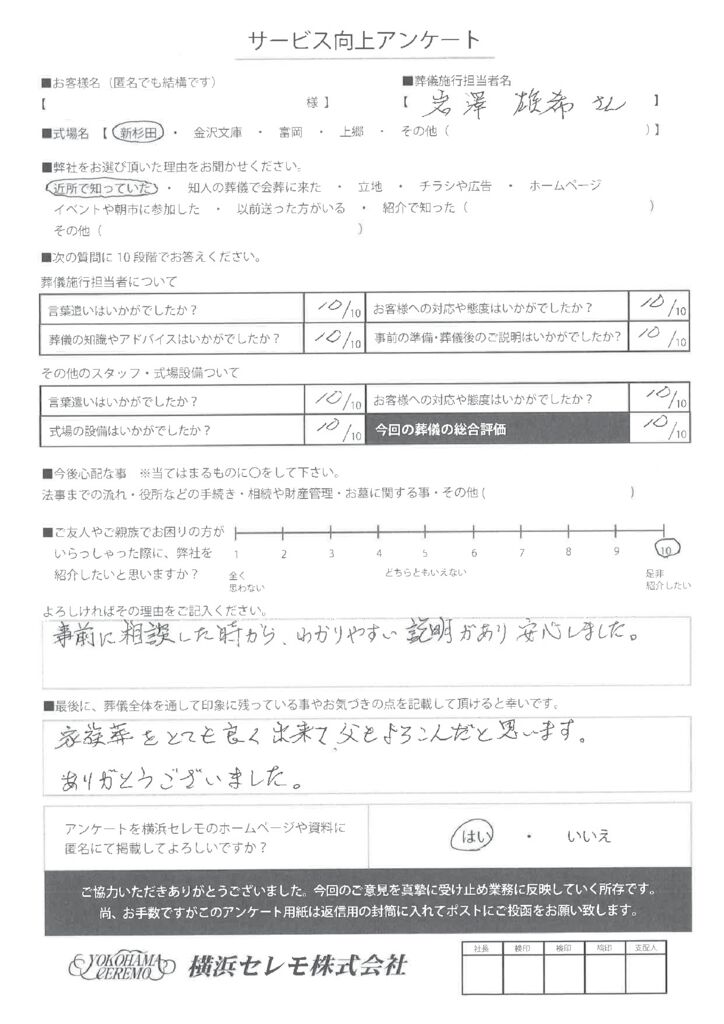 サービス向上アンケート
■お客様名（匿名でも結構です）
【 様】
■葬儀施行担当者名
【 岩澤 雄希さん 】
■式場名【 新杉田 ・ 金沢文庫 ・ 富岡 ・ 上郷 ・ その他（ ）】
■弊社をお選び頂いた理由をお聞かせください。
近所で知っていた ・ 知人の葬儀で会葬に来た ・ 立地 ・ チラシや広告 ・ ホームページ
イベントや朝市に参加した ・ 以前送った方がいる ・ 紹介で知った（ ）
その他（ ）
■次の質問に10段階でお答えください。
葬儀施行担当者について
言葉遣いはいかがでしたか？ 10/10 お客様への対応や態度はいかがでしたか？ 10/10
葬儀の知識やアドバイスはいかがでしたか？ 10/10 事前の準備・葬儀後のご説明はいかがでしたか？ 10/10
その他のスタッフ・式場設備ついて
言葉遣いはいかがでしたか？ 10/10 お客様への対応や態度はいかがでしたか？ 10/10
式場の設備はいかがでしたか？ 10/10 今回の葬儀の総合評価 10/10
■今後心配な事 ※当てはまるものに〇をして下さい。
法事までの流れ・役所などの手続き・相続や財産管理・お墓に関する事・その他（ ）
■ご友人やご親族でお困りの方が
いらっしゃった際に、弊社を
紹介したいと思いますか？
1 2 3 4 5 6 7 8 9 10
全く
思わない
どちらともいえない
是非
紹介したい
よろしければその理由をご記入ください。
事前に相談した時から、わかりやすい説明があり安心しました。
■最後に、葬儀全体を通して印象に残っている事やお気づきの点を記載して頂けると幸いです。
家族葬をとても良く出来て、父もよろこんだと思います。
ありがとうございました。
アンケートを横浜セレモのホームページや資料に
匿名にて掲載してよろしいですか？
はい ・ いいえ
ご協力いただきありがとうございました。今回のご意見を真摯に受け止め業務に反映していく所存です。
尚、お手数ですがこのアンケート用紙は返信用の封筒に入れてポストにご投函をお願い致します。
YOKOHAMA
CEREMO
横浜セレモ株式会社
社長 検印 検印 検印 支配人